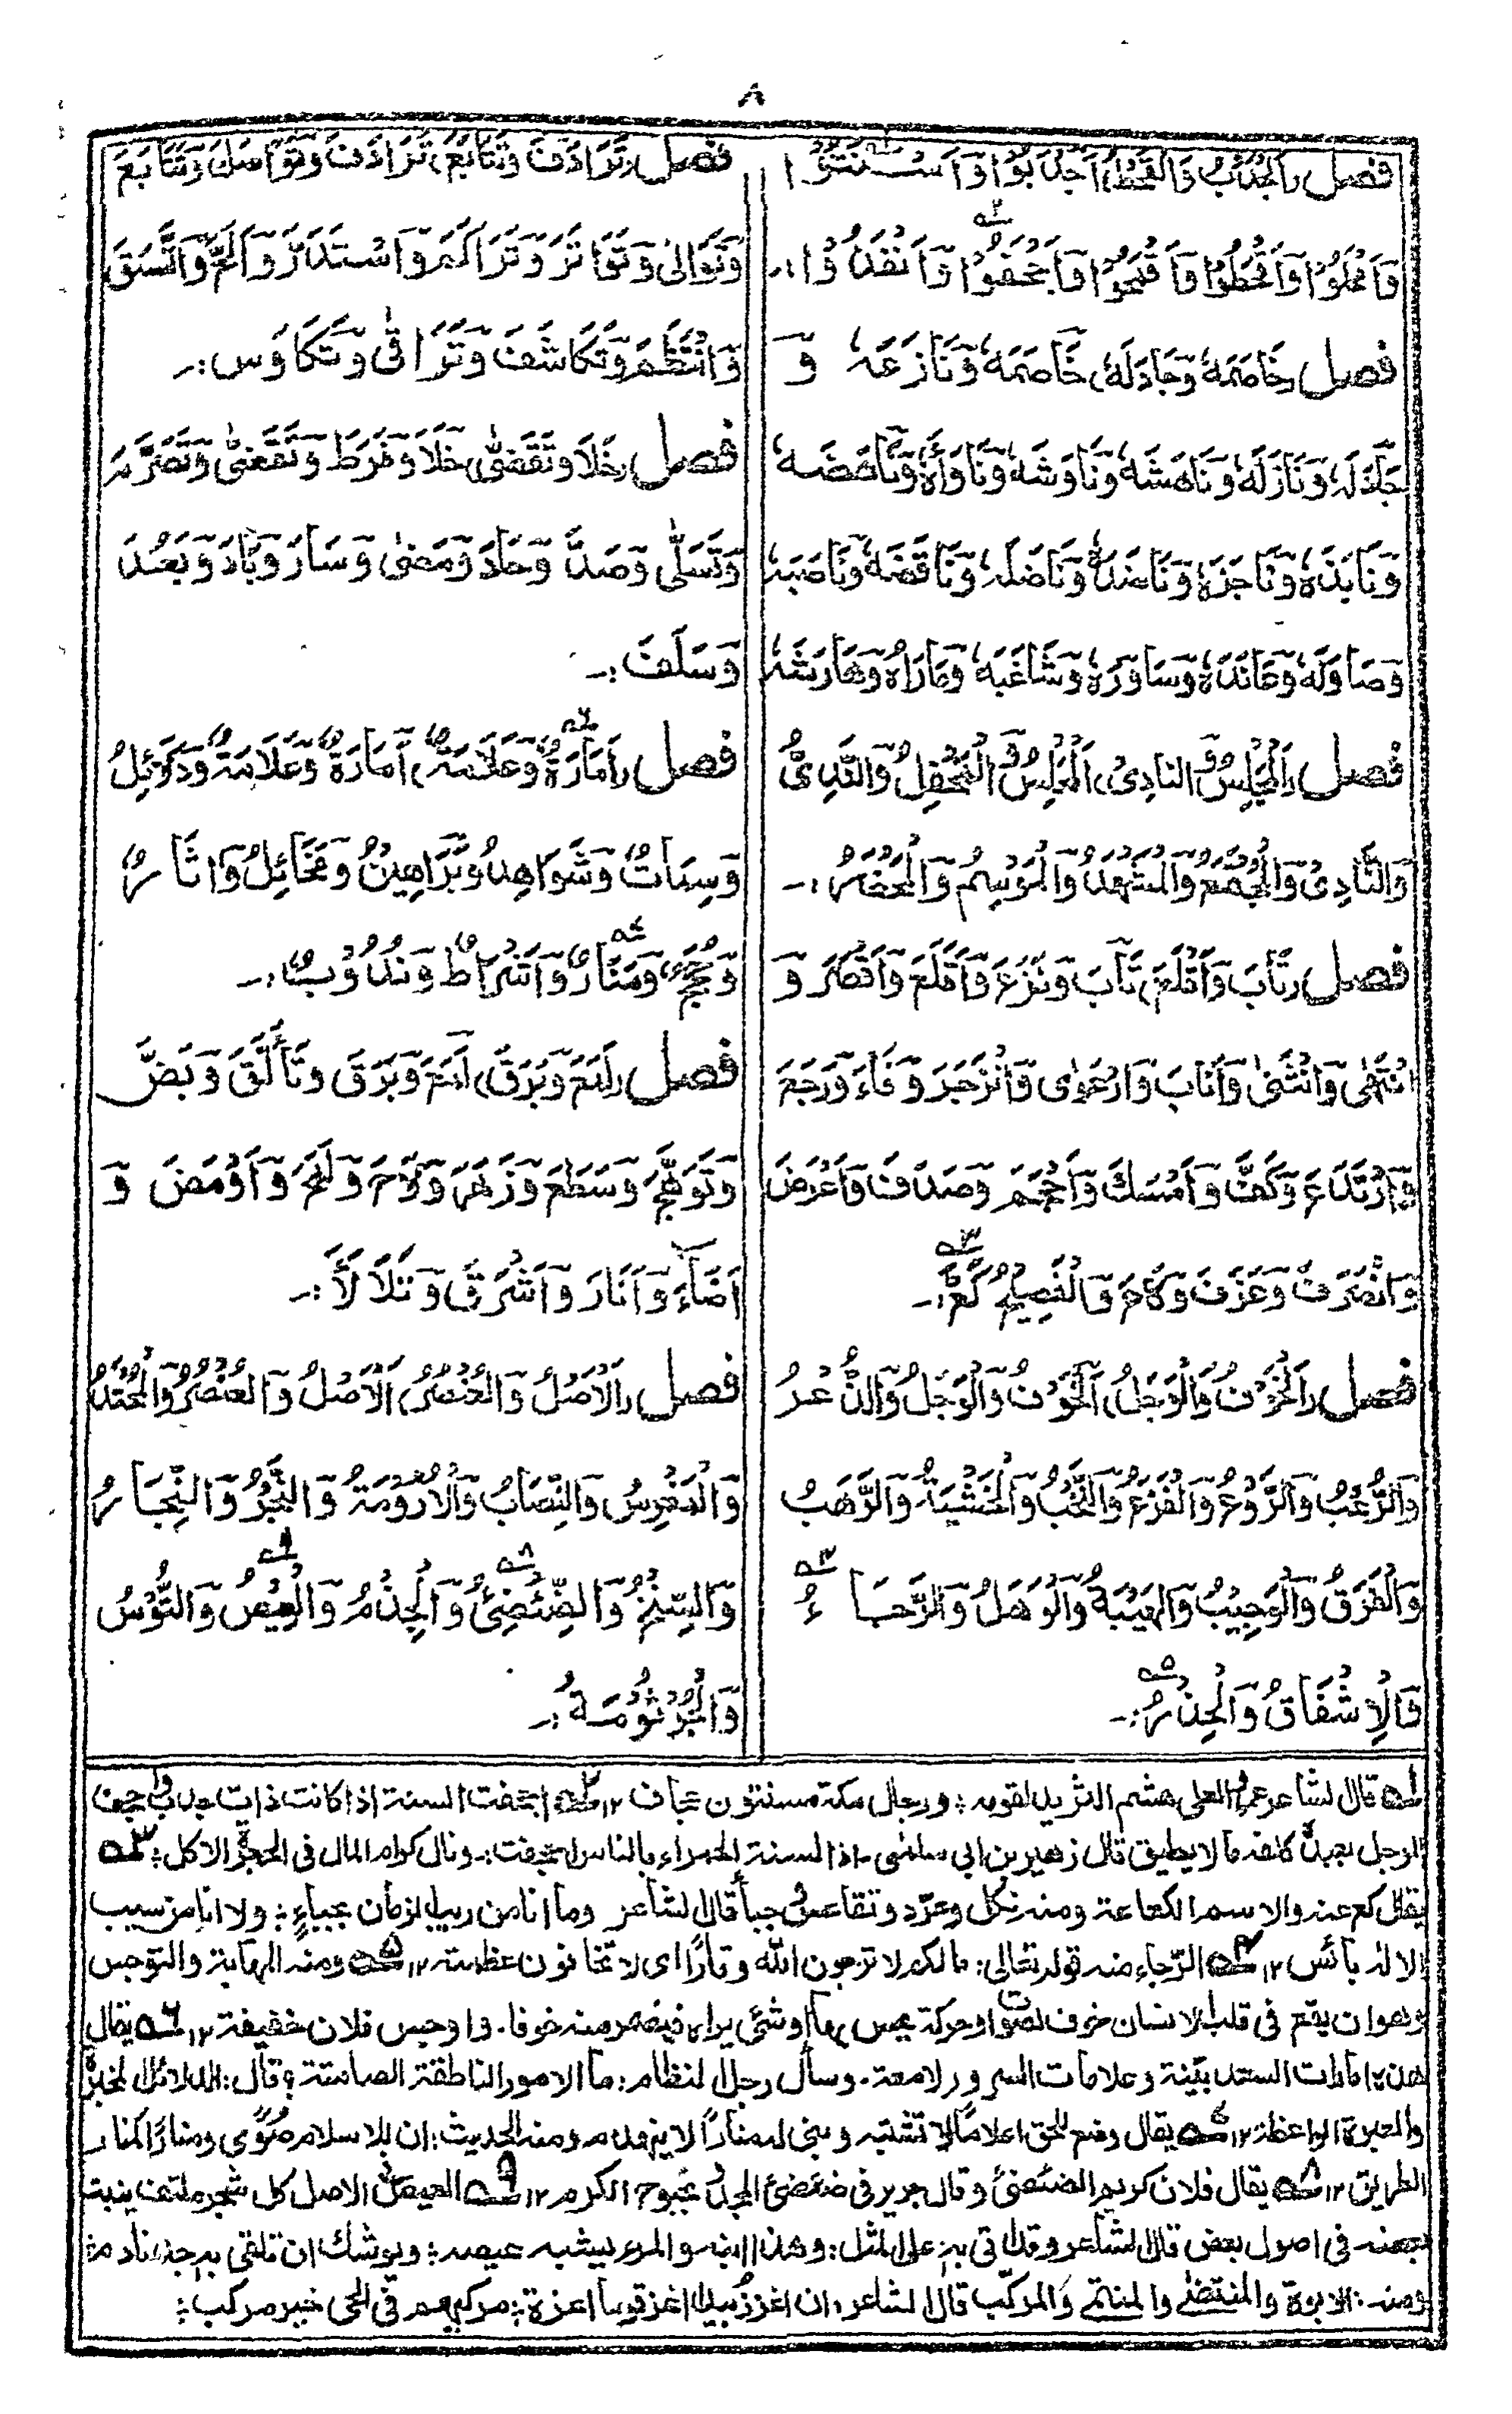 ٨
فصل (اَلْجَدْبُ وَالْقَحْطُ) اَجْدَبُوْا وَاَسْنَتُوْا
وَاَمْحَلُوْا وَاَقْحَطُوْا وَاَقْحَمُوْا وَاَجْحَفُوْا وَاَنْفَدُوْا :ـ
فصل (خَاصَمَهٗ وَجَادَلَهٗ) خَاصَمَهٗ وَنَازَعَهٗ وَ
جَادَلَهٗ وَنَازَلَهٗ وَنَاهَشَهٗ وَنَاوَشَهٗ وَنَاوَأَهٗ وَنَاهَضَهٗ
وَنَابَذَهٗ وَنَاجَزَهٗ وَنَاضَلَهٗ وَنَاقَضَهٗ وَنَاصَبَهٗ
وَصَاوَلَهٗ وَعَانَدَهٗ وَسَاوَرَهٗ وَشَاغَبَهٗ وَمَارَاهُ وَهَارَشَهٗ
فصل (اَلْمَجْلِسُ وَ النَادِیْ) اَلْمَجْلِسُ وَ الْمَحْفِلُ وَالنَّدِیُّ
وَالنَّادِیْ وَالْمَجْمَعُ وَالْمَشْهَدُ وَالْمَوْسِمُ وَالْمَحْضَرُ :ـ
فصل (تَابَ وَاَقْلَعَ) تَابَ وَنَزَعَ وَاَقْلَعَ وَاَقْصَرَ وَ
انْتَهٰى وَانْثَنٰى وَاَنَابَ وَارْعَوٰى وَانْزَجَرَ وَفَاءَ وَرَجَعَ
وَارْتَدَعَ وَكَفَّ وَاَمْسَكَ وَاَحْجَمَ وَصَدَفَ وَاَعْرَضَ
وَانْصَرَفَ وَعَزَفَ وَكَاعَ وَالْفَصِيْحُ كَعَّ :ـ
فصل (اَلْخَوْفُ وَالْوَجَلُ) اَلْخَوْفُ وَالْوَجَلُ وَالذُّعْرُ
وَالرُّعْبُ وَالرَّوْعُ وَالْفَزَعُ وَالنَّخْبُ وَالْخَشْيَةُ وَالرَّهَبُ
وَالْفَرَقُ وَالْوَجِيْبُ وَالْهَيْبَةُ وَالْوَهَلُ وَالرَّجَاءُ
وَالْاِشْفَاقُ وَالْحِذْرُ :ـ
فصل (تَرَادَفَ وَتَتَابَعَ) تَرَادَفَ وَتَوَاصَلَ وَتَتَابَعَ
وَتَوَالٰى وَتَوَاتَرَ وَتَرَاكَمَ وَاسْتَدَرَّ وَالْتَمَّ وَاتَّسَقَ
وَانْتَظَمَ وَتَكَاشَفَ وَتَرَاقٰى وَتَكَاوَسَ :ـ
فصل (خَلَا وَتَقَضّٰى) خَلَا وَفَرَطَ وَتَقَضّٰى وَتَصَرَّمَ
وَتَسَلّٰى وَصَدَّ وَحَادَ وَمَضٰى وَسَارَ وَبَادَ وَبَعُدَ
وَسَلَفَ :ـ
فصل (اَمَارَةٌ وَعَلَامَةٌ) اَمَارَةٌ وَعَلَامَةٌ وَدَلَائِلُ
وَسِمَاتٌ وَشَوَاهِدُ وَبَرَاهِيْنُ وَمَخَائِلُ وَاٰثَارٌ
وَحُجَجٌ وَمَنَارٌ وَاَشْرَاطٌ وَنُدُوْبٌ :ـ
فصل (لَمَعَ وَبَرَقَ) لَمَعَ وَبَرَقَ وَتَأَلَّقَ وَبَضَّ
وَتَوَهَّجَ وَسَطَعَ وَزَهَرَ وَلَاحَ وَلَمَحَ وَاَوْمَضَ وَ
اَضَاءَ وَاَنَارَ وَاَشْرَقَ وَتَلَأْلَأَ :ـ
فصل (الْاَصْلُ وَالْعُنْصُرُ) اَلْاَصْلُ وَالْعُنْصُرُ وَالْمَحْتِدُ
وَالْمَغْرِسُ وَالنِّصَابُ وَالْاَرُوْمَةُ وَالنَّجْرُ وَالنِّجَارُ
وَالسِّنْخُ وَالضِّئْضِئُ وَالْجِذْمُ وَالْعِيْصُ وَالتُّوْسُ
وَالْجُرْثُوْمَةُ :ـ
١ه قال الشاعر عمرو العلى هشم الثريد لقومه ؛ ورجال مكة مسنتون عجاف ١٢ ٢ه اجحفت السنة اذا كانت ذات جدب واجحف
الرجل بعبده كلفه ما لا يطيق قال زهير بن ابي سلمى ـ اذا السنة الحمراء بالناس اجحفت :ـ ونال كرام المال فى الحجرة الاكل ؛ ٣ه
يقال كع عنه والاسم الكعاعة ومنه نكل وعرّد وتقاعس وجبأ قال الشاعر وما انا من ريب الزمان بجباءٍ ؛ ولا انا من سيب
الاله بآئس ١٢ ٤ه الرّجاء منه قوله تعالى : ما لكم لا ترجون الله وقارًا اى لا تخافون عظمته ١٢ ٥ه ومنه المهابة والتوجس
وهو ان يقع فى قلب الانسان خوف لصوت اوحركة يحس بها اوشئ يراه فيضمر منه خوفا ـ واوجس فلان خفيفة ١٢ ٦ه يقال
هذه امارات السعد بيّنة وعلامات السرور لامعة ـ وسأل رجل النظام : ما الامور الناطقة الصامتة ؟ قال : الدلائل المخبرة
والعبرة الواعظة ١٢ ٧ه يقال وضع للحق اعلامًا لا تشتبه وبنى له منارًا لا ينهدم ومنه الحديث : ان للاسلام صُوًى ومنارًا كمنار
الطريق ١٢ ٨ه يقال فلان كريم الضئضئ وقال جرير فى ضئضئ المجد و بحبوح الكرم ١٢ ٩ه العيص الاصل كل شجر ملتف ينبت
بعضه فى اصول بعض قال الشاعر وقد اتى به على المثل : وهذا ابنه والمرء يشبه عيصه ؛ ويوشك ان تلقى به
ومنه : الابوة والمنتضى والمنتمى والمركّب قال الشاعر : ؛ مركبهم فى الحى خير مركب ؛